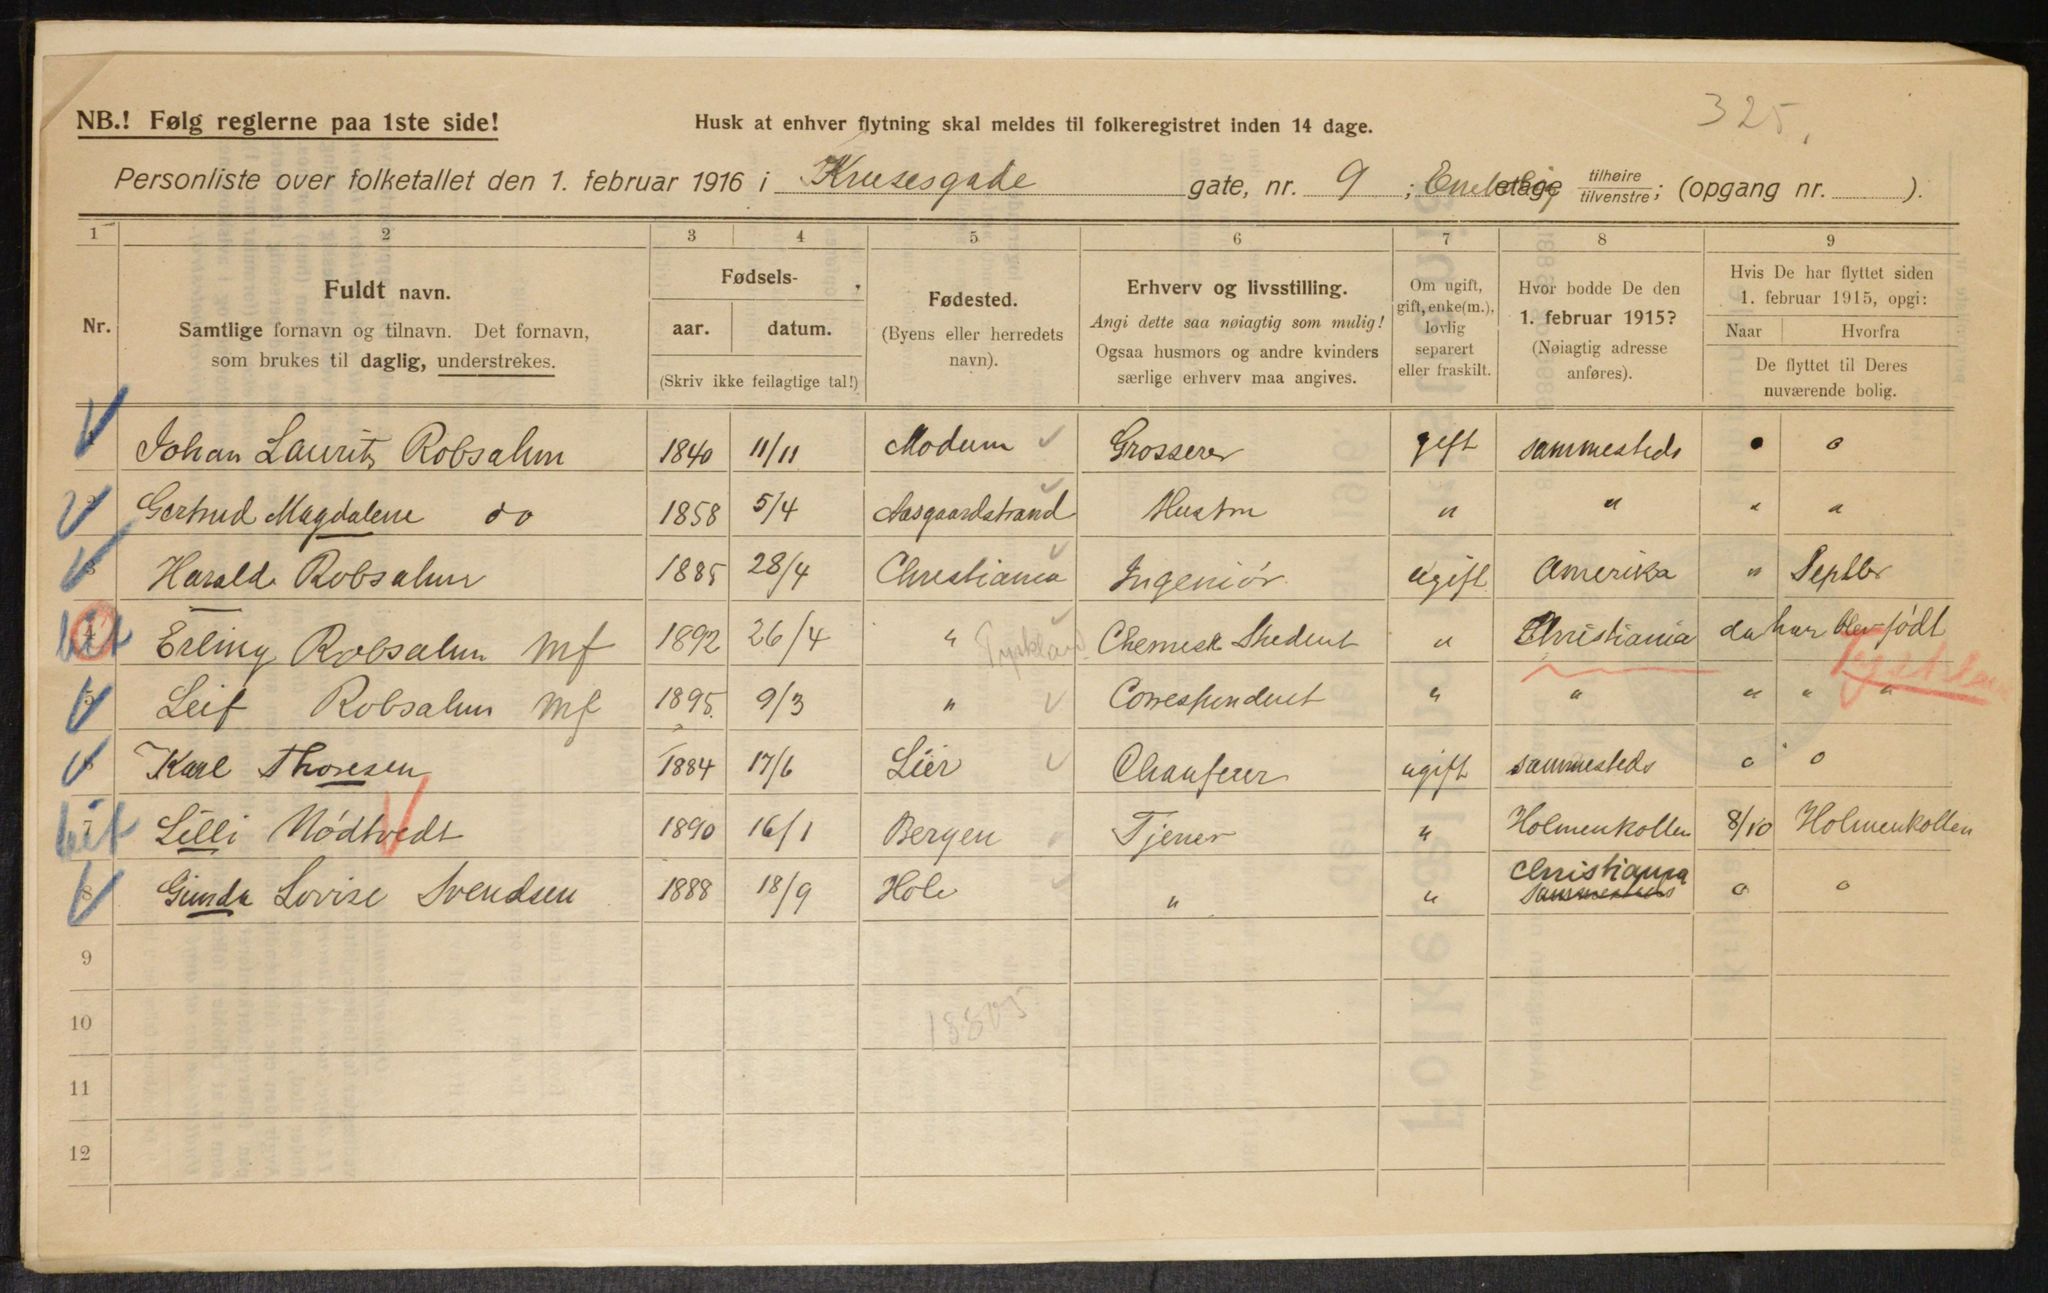 325.
NB.! Følg reglerne paa 1ste side!
Husk at enhver flytning skal meldes til folkeregistret inden 14 dage.
Personliste over folketallet den 1. februar 1916 i Krusesgade gate, nr. 9 ; etage tilhøire tilvenstre; (opgang nr. ).
1 2 3 4 5 6 7 8 9
Nr.
Fuldt navn.
Samtlige fornavn og tilnavn. Det fornavn,
som brukes til daglig, understrekes.
Fødsels-
aar. datum.
(Skriv ikke feilagtige tal!)
Fødested.
(Byens eller herredets
navn).
Erhverv og livsstilling.
Angi dette saa nøiagtig som mulig!
Ogsaa husmors og andre kvinders
særlige erhverv maa angives.
Om ugift,
gift, enke(m.),
lovlig
separert
eller fraskilt.
Hvor bodde De den
1. februar 1915?
(Nøiagtig adresse
anføres).
Hvis De har flyttet siden
1. februar 1915, opgi:
Naar Hvorfra
De flyttet til Deres
nuværende bolig.
Johan Laurits Robsahm 1840 11/11 Modum Grosserer gift sammesteds o o
Gertrud Magdalene do 1858 5/4 Aasgaardstrand Hustru " " " "
3 Harald Robsahm 1885 28/4 Christiania Ingeniör ugift Amerika " Septbr
4 Erling Robsahm mf 1892 26/4 " Tyskland Chemisk Student " Christiania da har blev födt
5 Leif Robsahm mf 1895. 9/3 " Correspondent " " " " "
Karl Thoresen 1884 17/6 Lier Chauferer ugift sammesteds o o
7 Lilli Nödtvedt 1890 16/1 Bergen Tjener " Holmenkollen 8/10 Holmenkollen
8 Gunda Lovise Svendsen 1888 18/9 Hole " " Christiania sammesteds o o
9
10
11
12